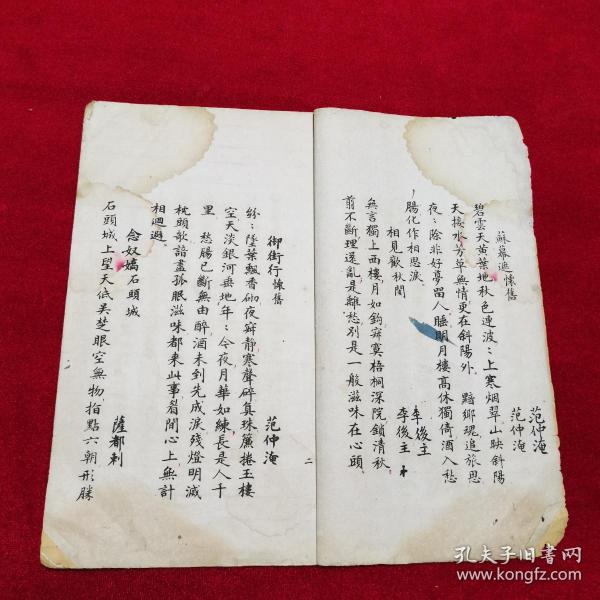 范仲淹
蘇幕遮懷舊 范仲淹
碧雲天黃葉地秋色連波：上寒烟翠山映斜陽
天接水芳草無情更在斜陽外 黯鄉魂追旅思
夜：除非好夢留人睡明月樓高休獨倚酒入愁
腸化作相思淚 李後主
相見歡秋閨 李後主
無言獨上西樓月如鈎寂寞梧桐深院鎖清秋
剪不斷理還亂是離愁別是一般滋味在心頭
二
御街行懷舊 范仲淹
紛：墜葉飄香砌夜寂静寒聲碎真珠簾捲玉樓
空天淡銀河垂地年：今夜月華如練長是人千
里 愁腸已斷無由醉酒未到先成淚殘燈明滅
枕頭欹諳盡孤眠滋味都來此事眉間心上無計
相迴避
念奴嬌石頭城 薩都剌
石頭城上望天低吳楚眼空無物指點六朝形勝
孔夫子旧书网
www.kongfz.com